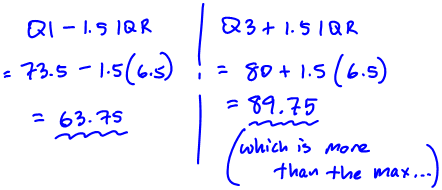 Q1 - 1.5 IQR
= 73.5 - 1.5(6.5)
= 63.75
Q3 + 1.5 IQR
= 80 + 1.5(6.5)
= 89.75
(which is more
than the max...)